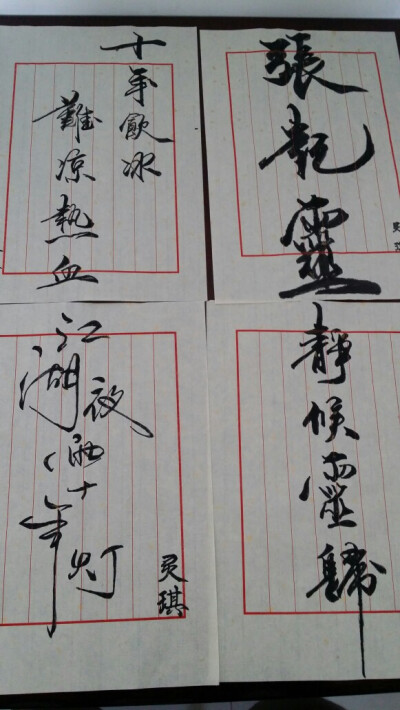 十年飲冰
難凉熱血
張乾靈
江湖夜雨十年灯
灵琪
靜候靈歸